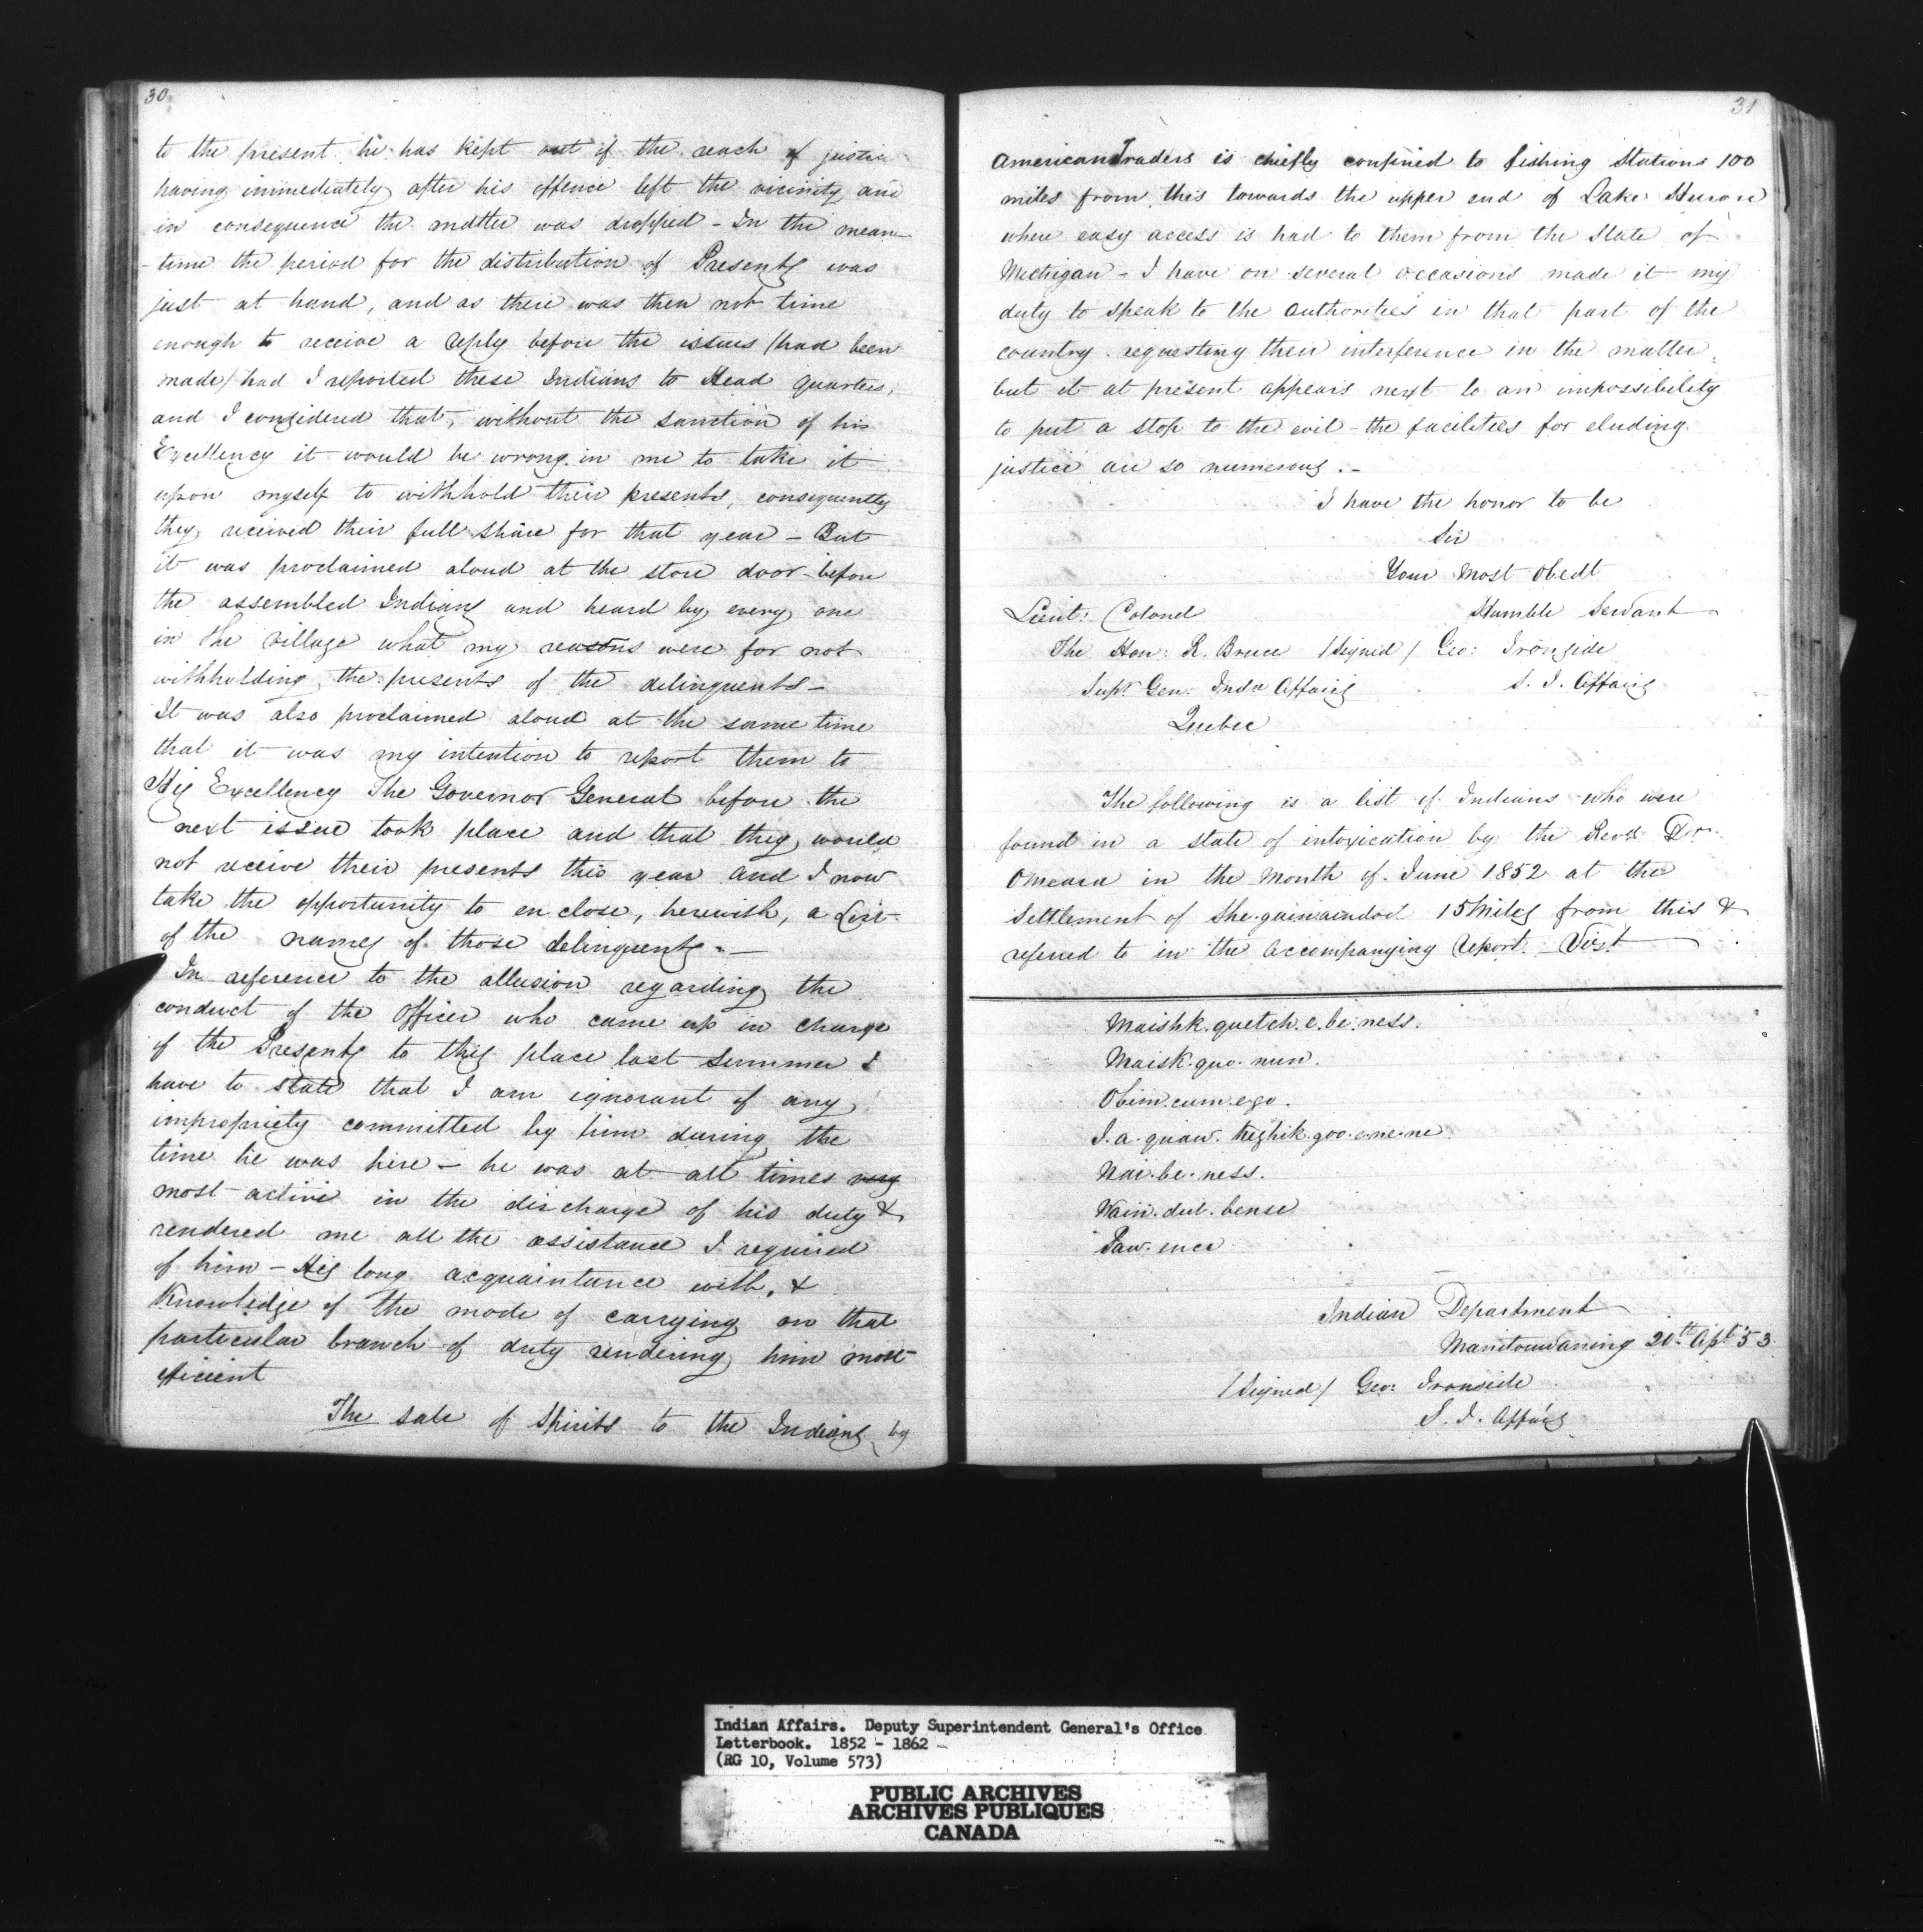 30
to the present he has kept out of the reach of justice
having immediately after his offence left the vicinity and
in consequence the matter was dropped - In the mean
- time the period for the distribution of Presents was
just at hand, and as there was then not time
enough to receive a reply before the issues /had been
made/ had I reported these Indians to Head quarters,
and I considered that, without the sanction of his
Excellency it would be wrong in me to take it
upon myself to withhold their presents, consequently
they received their full share for that year - But
it was proclaimed aloud at the store door before
the assembled Indians and heard by every one
in the village what my reasons were for not
withholding the presents of the delinquents -
It was also proclaimed aloud at the same time
that it was my intention to report them to
His Excellency The Governor General before the
next issue took place and that they would
not receive their presents this year and I now
take the opportunity to enclose, herewith, a List
of the names of those delinquents. -
In reference to the allusion regarding the
conduct of the Officer who came up in charge
of the Presents to this place last Summer I
have to state that I am ignorant of any
impropriety committed by him during the
time he was here - he was at all times very
most active in the discharge of his duty &
rendered me all the assistance I required
of him - His long acquaintance with, &
Knowledge of the mode of carrying on that
particular branch of duty rendering him most
efficient
The sale of Spirits to the Indians by
31
American Traders is chiefly confined to fishing Stations 100
miles from this towards the upper end of Lake Huron
where easy access is had to them from the State of
Michigan - I have on several occasions made it my
duty to speak to the authorities in that part of the
country requesting their interference in the matter,
but it at present appears next to an impossibility
to put a stop to the evil - the facilities for eluding
justice are so numerous. -
I have the honor to be
Sir
Your Most Obedt
Humble Servant
Lieut: Colonel
The Hon: R. Bruce /Signed/ Geo: Ironside
Supt Gen: Indn Affairs S. I. Affairs
Quebec
The following is a list of Indians who were
found in a state of intoxication by the Revd Dr.
OMeara in the Month of June 1852 at the
Settlement of She.guinaindod 15 Miles from this &
referred to in the accompanying Report. Vizt
Maishk.quetch.e.be.ness.
Maisk.quo.nun.
Obim.cum.ego.
I.a.quaw. kezhik.goo.e.ne.ne.
Nai.be.ness.
Wain.dut.bense
Paw.ence
Indian Department
Manitowaning 20th Apl '53
/Signed/ Geo: Ironside
S. I. Affairs
Indian Affairs. Deputy Superintendent General's Office
Letterbook. 1852 - 1862 -
(RG 10, Volume 573)
PUBLIC ARCHIVES
ARCHIVES PUBLIQUES
CANADA